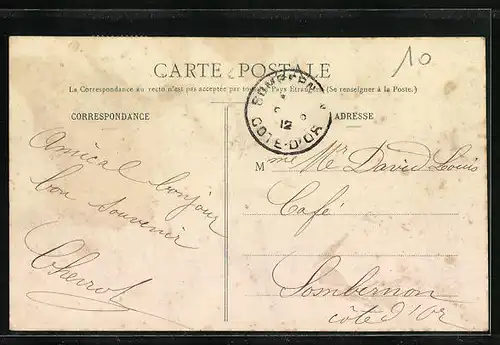 10
CARTE POSTALE
La Correspondance au recto n'est pas acceptée par tous les Pays Étrangers (Se renseigner à la Poste.)
CORRESPONDANCE
ADRESSE
12
COTE-D'OR
Amical bonjour
bon souvenir
Chevrot
Mme Mr David Louis
Café
Sombernon
côte d'Or